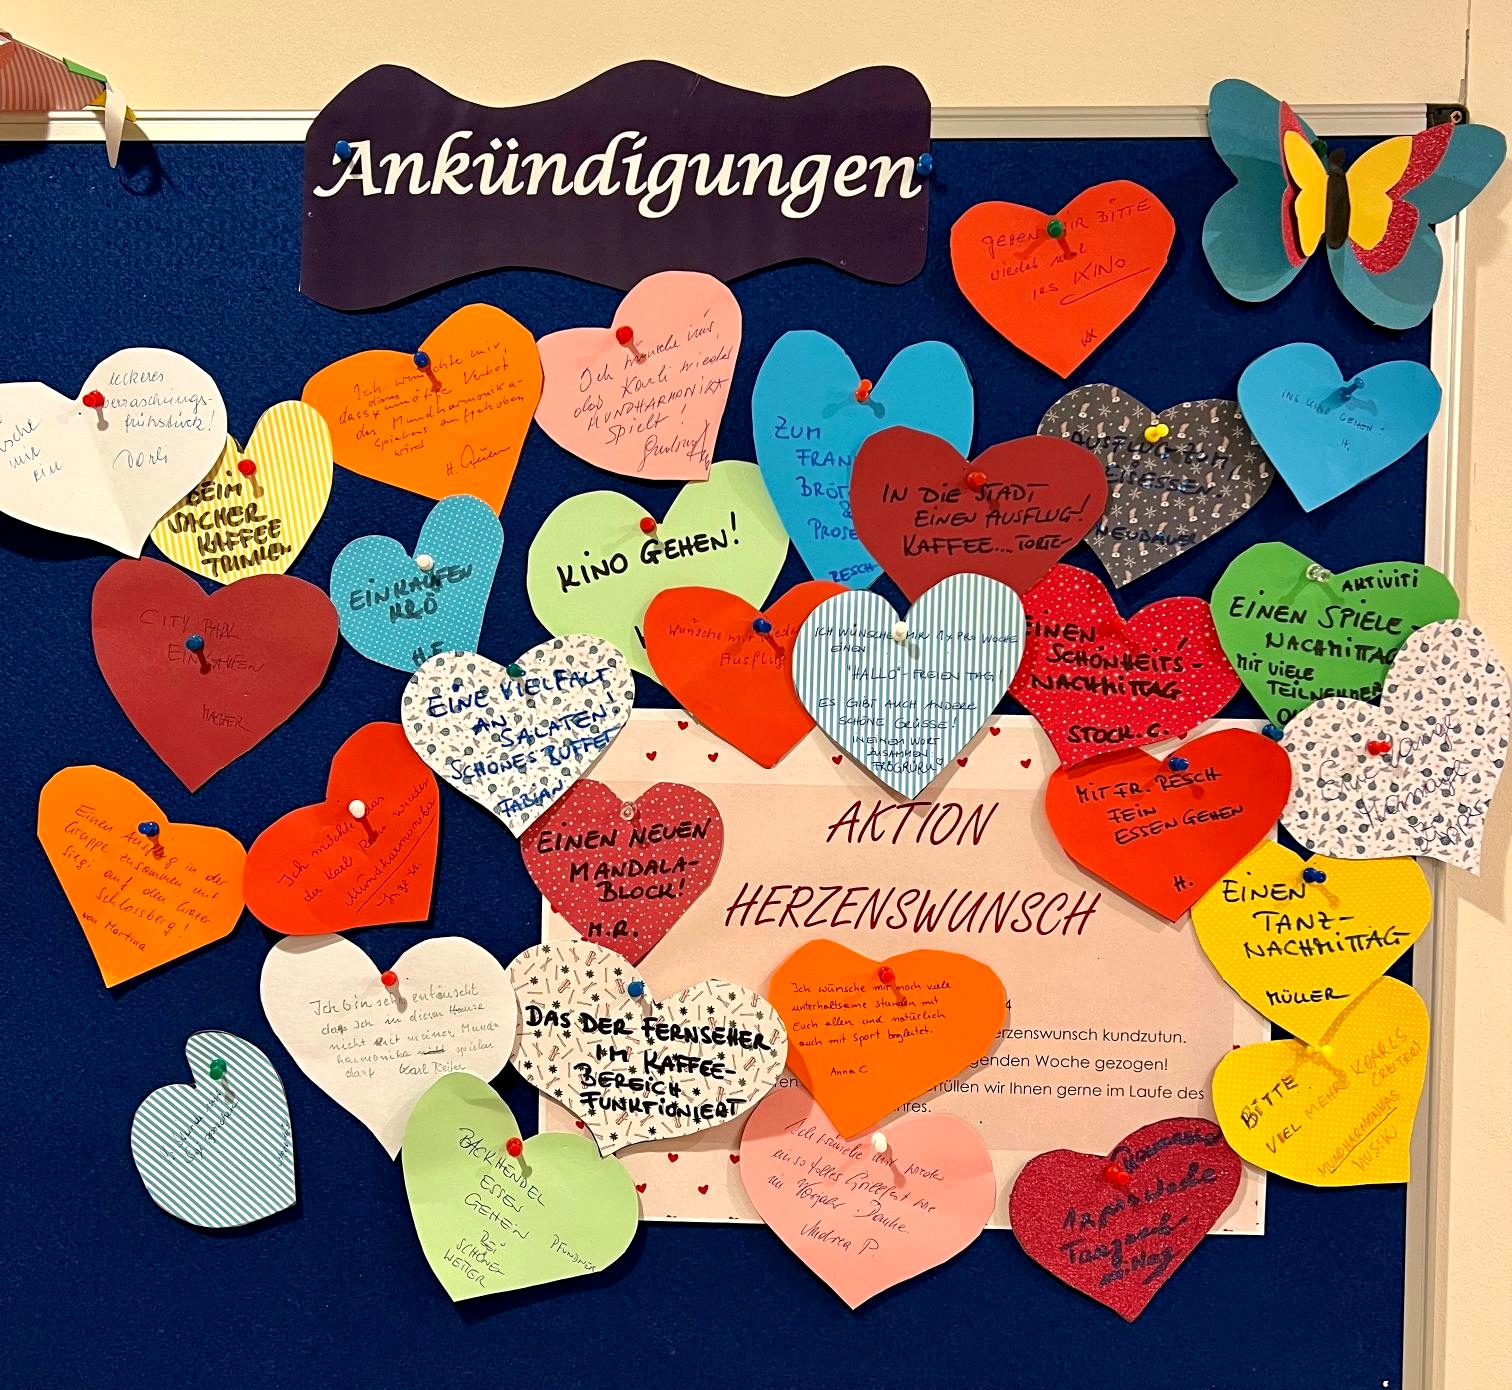 Ankündigungen
GEHEN WIR BITTE
wieder mal
ins KINO
leckeres
überraschungs-
frühstück!
wünsche
mir
ein
Dorli
BEIM
SACHER
KAFFEE
TRINKEN
Ich wünsche mir,
dass dieses unnötige Verbot
des Mundharmonika-
spielens aufgehoben
wird
H.
Ich wünsche mir,
daß Karli wieder
MUNDHARMONIKA
spielt!
ZUM
FRAN
BRÖT
&
PROSE
RESCH
IN DIE STADT
EINEN AUSFLUG!
KAFFEE... TORTE
AUSFLUG ZUM
EISESSEN.
NEUDAUER
INS KINO GEHEN!
H.
EINKAUFEN
KRÖ
H.F.
KINO GEHEN!
CITY PARK
EINKAUFEN
EINE VIELFALT
AN
SALATEN!
SCHÖNES BUFFET
FABIAN
Wünsche mir wieder
Ausflug
ICH WÜNSCHE MIR 1x PRO WOCHE
EINEN
"HALLO"-FREIEN TAG!
ES GIBT AUCH ANDERE
SCHÖNE GRÜSSE!
IN EINEM WORT
ZUSAMMEN:
EINEN
SCHÖNHEITS-
NACHMITTAG
STOCK. C.
AKTIVITI
EINEN SPIELE-
NACHMITTAG
MIT VIELE
TEILNEHMER
Eine lange
Massage
MIT FR. RESCH
FEIN
ESSEN GEHEN
H.
Einen Ausflug in der
Gruppe zusammen mit
Sigi auf den Grazer
Schlossberg!
von Martina
Ich möchte das
der Karl wieder
Mundharmonika
EINEN NEUEN
MANDALA-
BLOCK!
M.R.
AKTION
HERZENSWUNSCH
erzenswunsch kundzutun.
genden Woche gezogen!
füllen wir Ihnen gerne im Laufe des
hres.
EINEN
TANZ-
NACHMITTAG
MÜLLER
Ich bin sehr entäuscht
daß ich in diesem Hause
nicht mit meiner Mund-
harmonika spielen
darf Karl
DAS DER FERNSEHER
IM KAFFEE-
BEREICH
FUNKTIONIERT
Ich wünsche mir noch viele
unterhaltsame Stunden mit
Euch allen und natürlich
auch mit Sport begleitet.
Anna C
BITTE
VIEL MEHR KOARLS
MUNDHARMONIKAS
MUSIK!
BACKHENDEL
ESSEN
GEHEN
BEI
SCHÖNEN
WETTER
PFUNDNER
Ich wünsche mir wieder
ein so tolles Grillfest wie
im Vorjahr. Danke.
Andrea P.